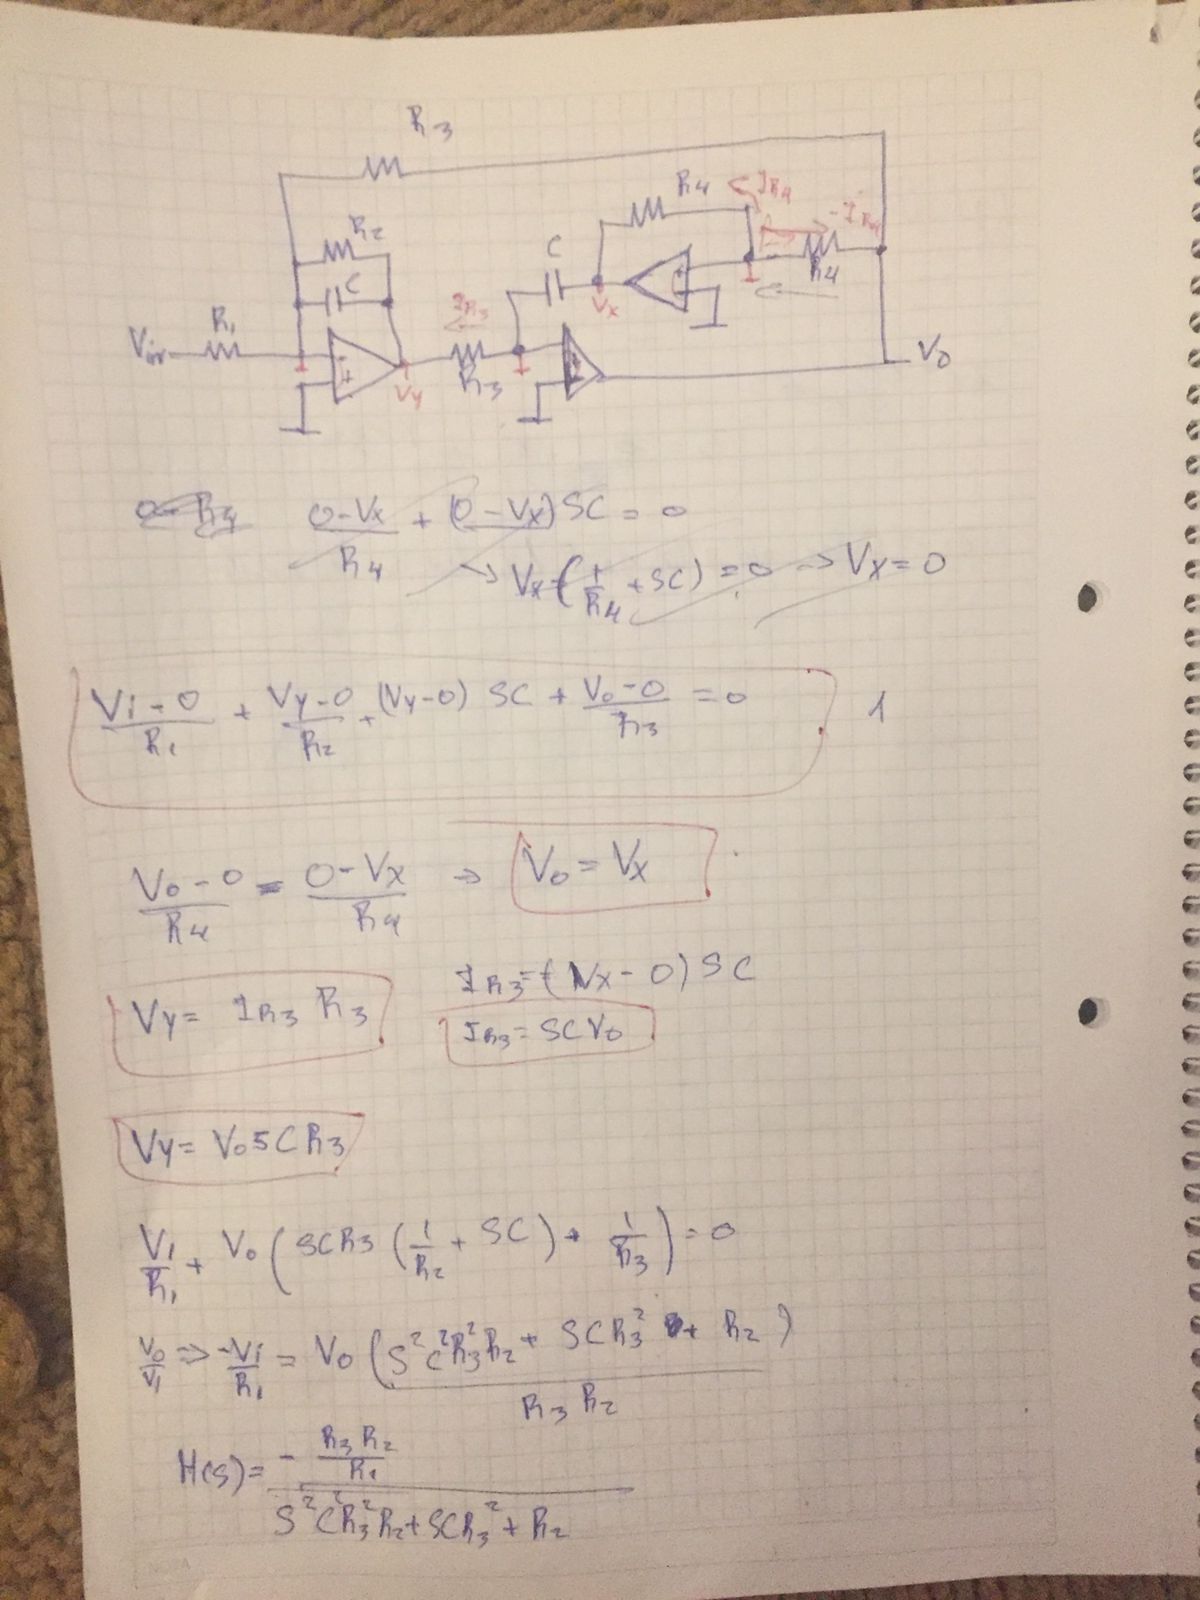 R3
R4
IR4
-IR4
R2
C
C
R4
R1
IR3
Vx
Vin
-
+
Vy
R3
Vo
0-R4 (0-Vx)/R4 + (0-Vx)SC = 0
→ Vx=(1/R4 + SC) = 0 → Vx = 0
(Vi-0)/R1 + (Vy-0)/R2 + (Vy-0) SC + (Vo-0)/R3 = 0 1
(Vo-0)/R4 = (0-Vx)/R4 → Vo = Vx
IR3=(Vx-0) SC
Vy= IR3 R3
IR3= SCVo
Vy= VoSCR3
Vi/R1 + Vo (SCR3 (1/R2 + SC) + 1/R3) = 0
Vo/Vi ⇒ -Vi/R1 = Vo (S²C²R3²R2 + SCR3² + R2)/(R3 R2)
H(s)= -(R3 R2/R1)/(S²C²R3²R2+SCR3²+R2)